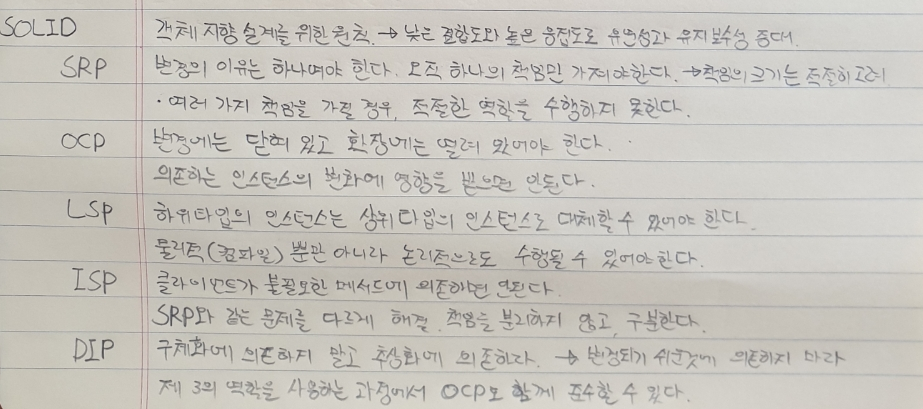 SOLID 객체 지향 설계를 위한 원칙. → 낮은 결합도와 높은 응집도로 유연성과 유지보수성 증대.
SRP 변경의 이유는 하나여야 한다. 오직 하나의 책임만 가져야한다. → 책임의 크기는 적절히 고려
· 여러 가지 책임을 가질 경우, 적절한 역할을 수행하지 못한다.
OCP 변경에는 닫혀 있고 확장에는 열려 있어야 한다.
의존하는 인스턴스의 변화에 영향을 받으면 안된다.
LSP 하위타입의 인스턴스는 상위타입의 인스턴스로 대체할 수 있어야 한다.
물리적(컴파일) 뿐만 아니라 논리적으로도 수행될 수 있어야한다.
ISP 클라이언트가 불필요한 메서드에 의존하면 안된다.
SRP와 같은 문제를 다르게 해결. 책임을 분리하지 않고, 구분한다.
DIP 구체화에 의존하지 말고 추상화에 의존하라. → 변경되기 쉬운것에 의존하지 마라
제 3의 역할을 사용하는 과정에서 OCP도 함께 준수할 수 있다.